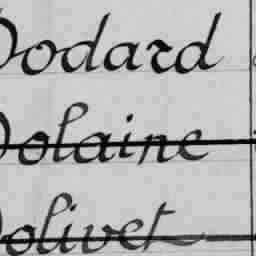 Dodard
Dolaine
Dolivet